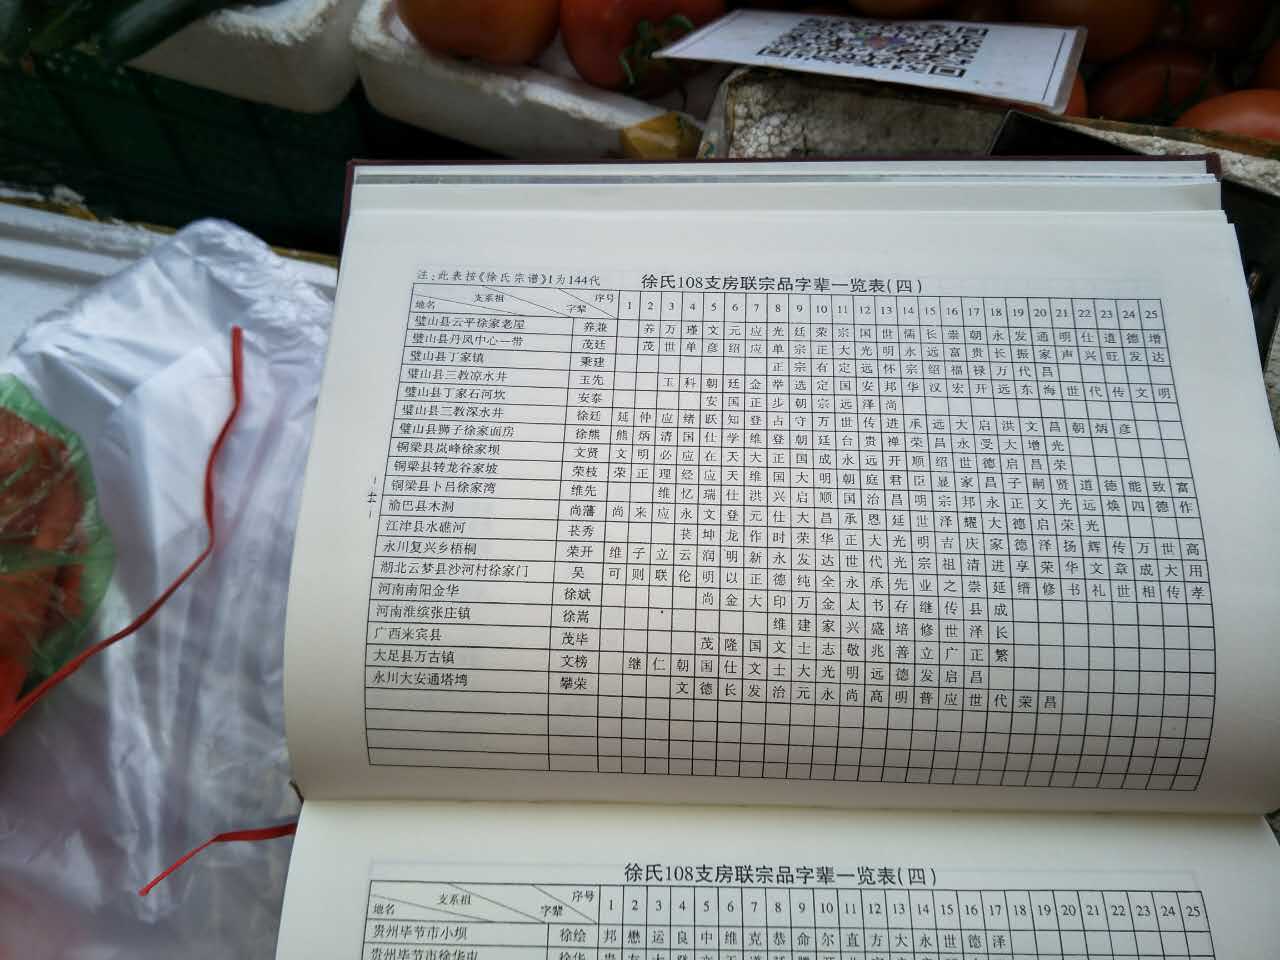 注:此表按《徐氏宗谱》1为144代
徐氏108支房联宗品字辈一览表(四)
地名 支系祖 字辈 序号 1 2 3 4 5 6 7 8 9 10 11 12 13 14 15 16 17 18 19 20 21 22 23 24 25
璧山县云平徐家老屋 养兼 养 万 瑾 文 元 应 光 廷 荣 宗 国 世 儒 长 崇 朝 永 发 通 明 仕 道 德 增
璧山县丹凤中心一带 茂廷 茂 世 单 彦 绍 应 单 宗 正 大 光 明 永 远 富 贵 长 振 家 声 兴 旺 发 达
璧山县丁家镇 秉建 正 宗 有 定 远 怀 宗 绍 福 禄 万 代 昌
璧山县三教凉水井 玉先 玉 科 朝 廷 金 举 选 定 国 安 邦 华 汉 宏 开 远 东 海 世 代 传 文 明
璧山县丁家石河坎 安泰 安 国 正 步 朝 宗 远 泽 尚
璧山县三教深水井 徐廷 延 仲 应 绪 跃 知 登 占 守 万 世 传 进 承 远 大 启 洪 文 昌 朝 炳 彦
璧山县狮子徐家面房 徐熊 熊 炳 清 国 仕 学 维 登 朝 廷 台 贵 禅 荣 昌 永 受 大 增 光
铜梁县岚峰徐家坝 文贤 文 明 必 应 在 天 大 正 国 成 永 远 开 顺 绍 世 德 启 昌 荣
铜梁县转龙谷家坡 荣枝 荣 正 理 经 应 天 维 国 大 明 朝 庭 君 臣 显 家 昌 子 嗣 贤 道 德 能 致 富
铜梁县卜吕徐家湾 维先 维 忆 瑞 仕 洪 兴 启 顺 国 治 昌 明 宗 邦 永 正 文 光 远 焕 四 德 作
渝巴县木洞 尚藩 尚 来 应 永 文 登 元 仕 大 昌 承 恩 延 世 泽 耀 大 德 启 荣 光
江津县水礁河 苌秀 苌 坤 龙 作 时 荣 华 正 大 光 明 吉 庆 家 德 泽 扬 辉 传 万 世 高
永川复兴乡梧桐 荣开 维 子 立 云 润 明 新 永 发 达 世 代 光 宗 祖 清 进 享 荣 华 文 章 成 大 用
湖北云梦县沙河村徐家门 吴 可 则 联 伦 明 以 正 德 纯 全 永 承 先 业 之 崇 延 缙 修 书 礼 世 相 传 孝
河南南阳金华 徐斌 尚 金 大 印 万 金 太 书 存 继 传 县 成
河南淮缤张庄镇 徐嵩 维 建 家 兴 盛 培 修 世 泽 长
广西来宾县 茂毕 茂 隆 国 文 士 志 敬 兆 善 立 广 正 繁
大足县万古镇 文榜 继 仁 朝 国 仕 文 士 大 光 明 远 德 发 启 昌
永川大安通塔塆 攀荣 文 德 长 发 治 元 永 尚 高 明 普 应 世 代 荣 昌
徐氏108支房联宗品字辈一览表(四)
地名 支系祖 字辈 序号 1 2 3 4 5 6 7 8 9 10 11 12 13 14 15 16 17 18 19 20 21 22 23 24 25
贵州毕节市小坝 徐绘 邦 懋 运 良 中 维 克 恭 命 尔 直 方 大 永 世 德 泽
贵州毕节市徐华屯 徐华